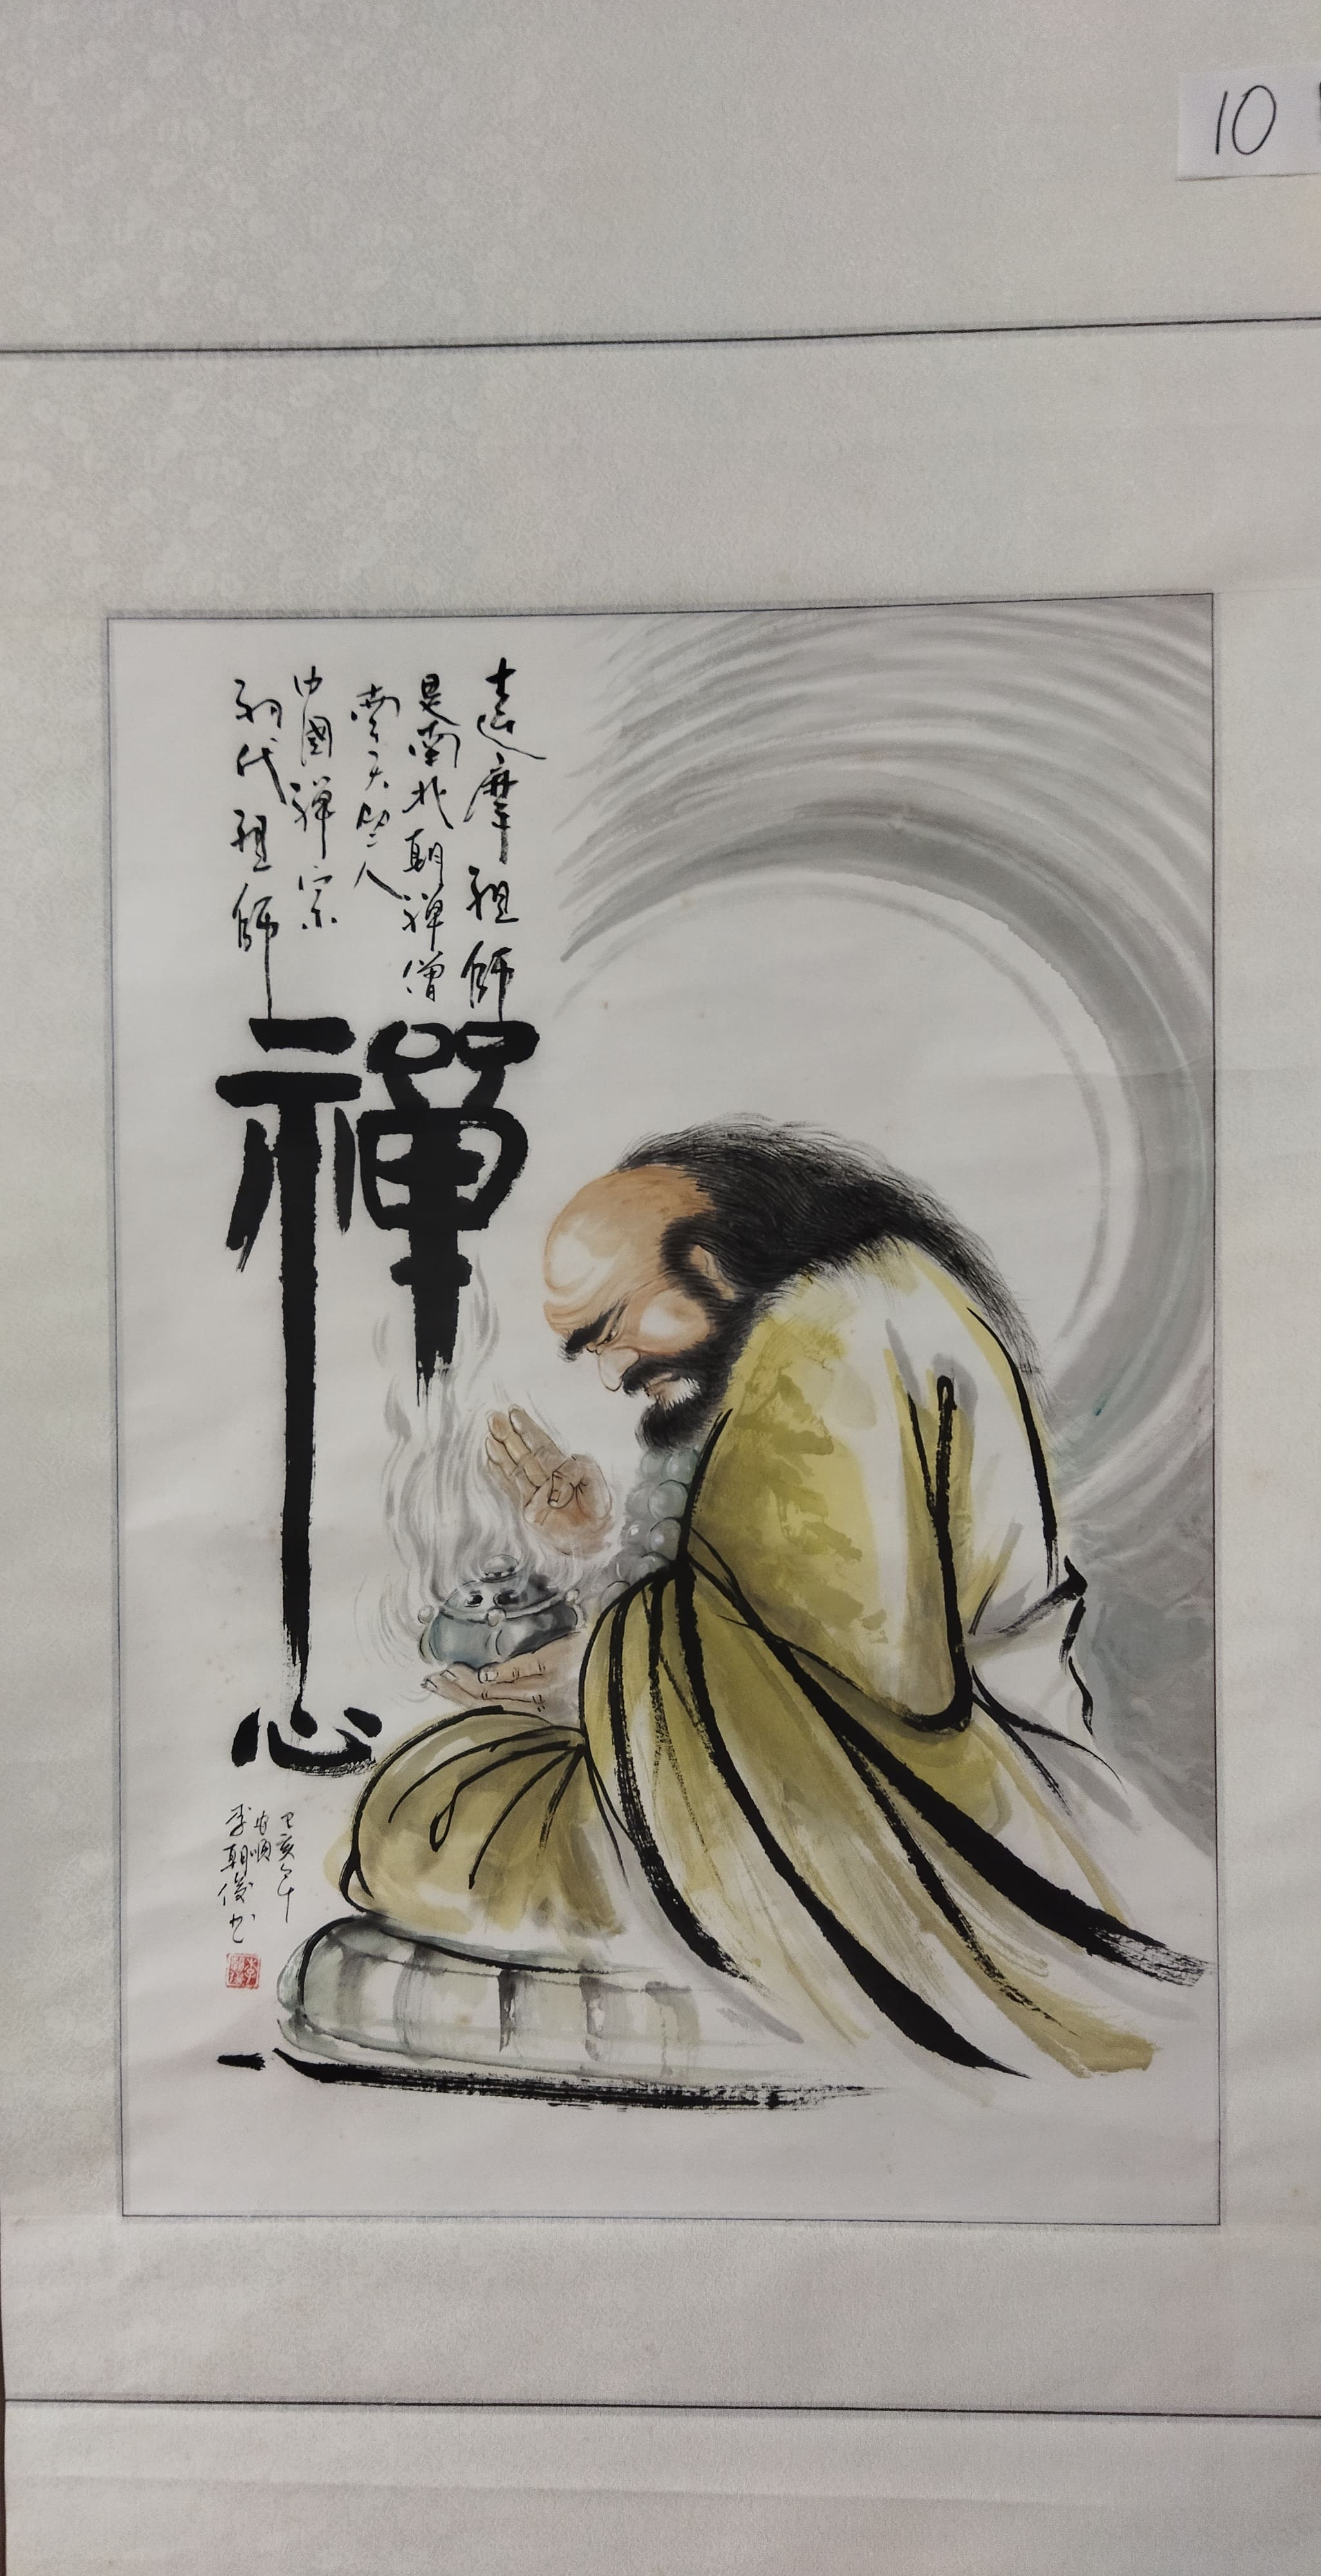 10
達摩祖師
是南北朝禅僧
南天竺人
中國禅宗
初代祖師
禪心
己亥年
李朝俊书